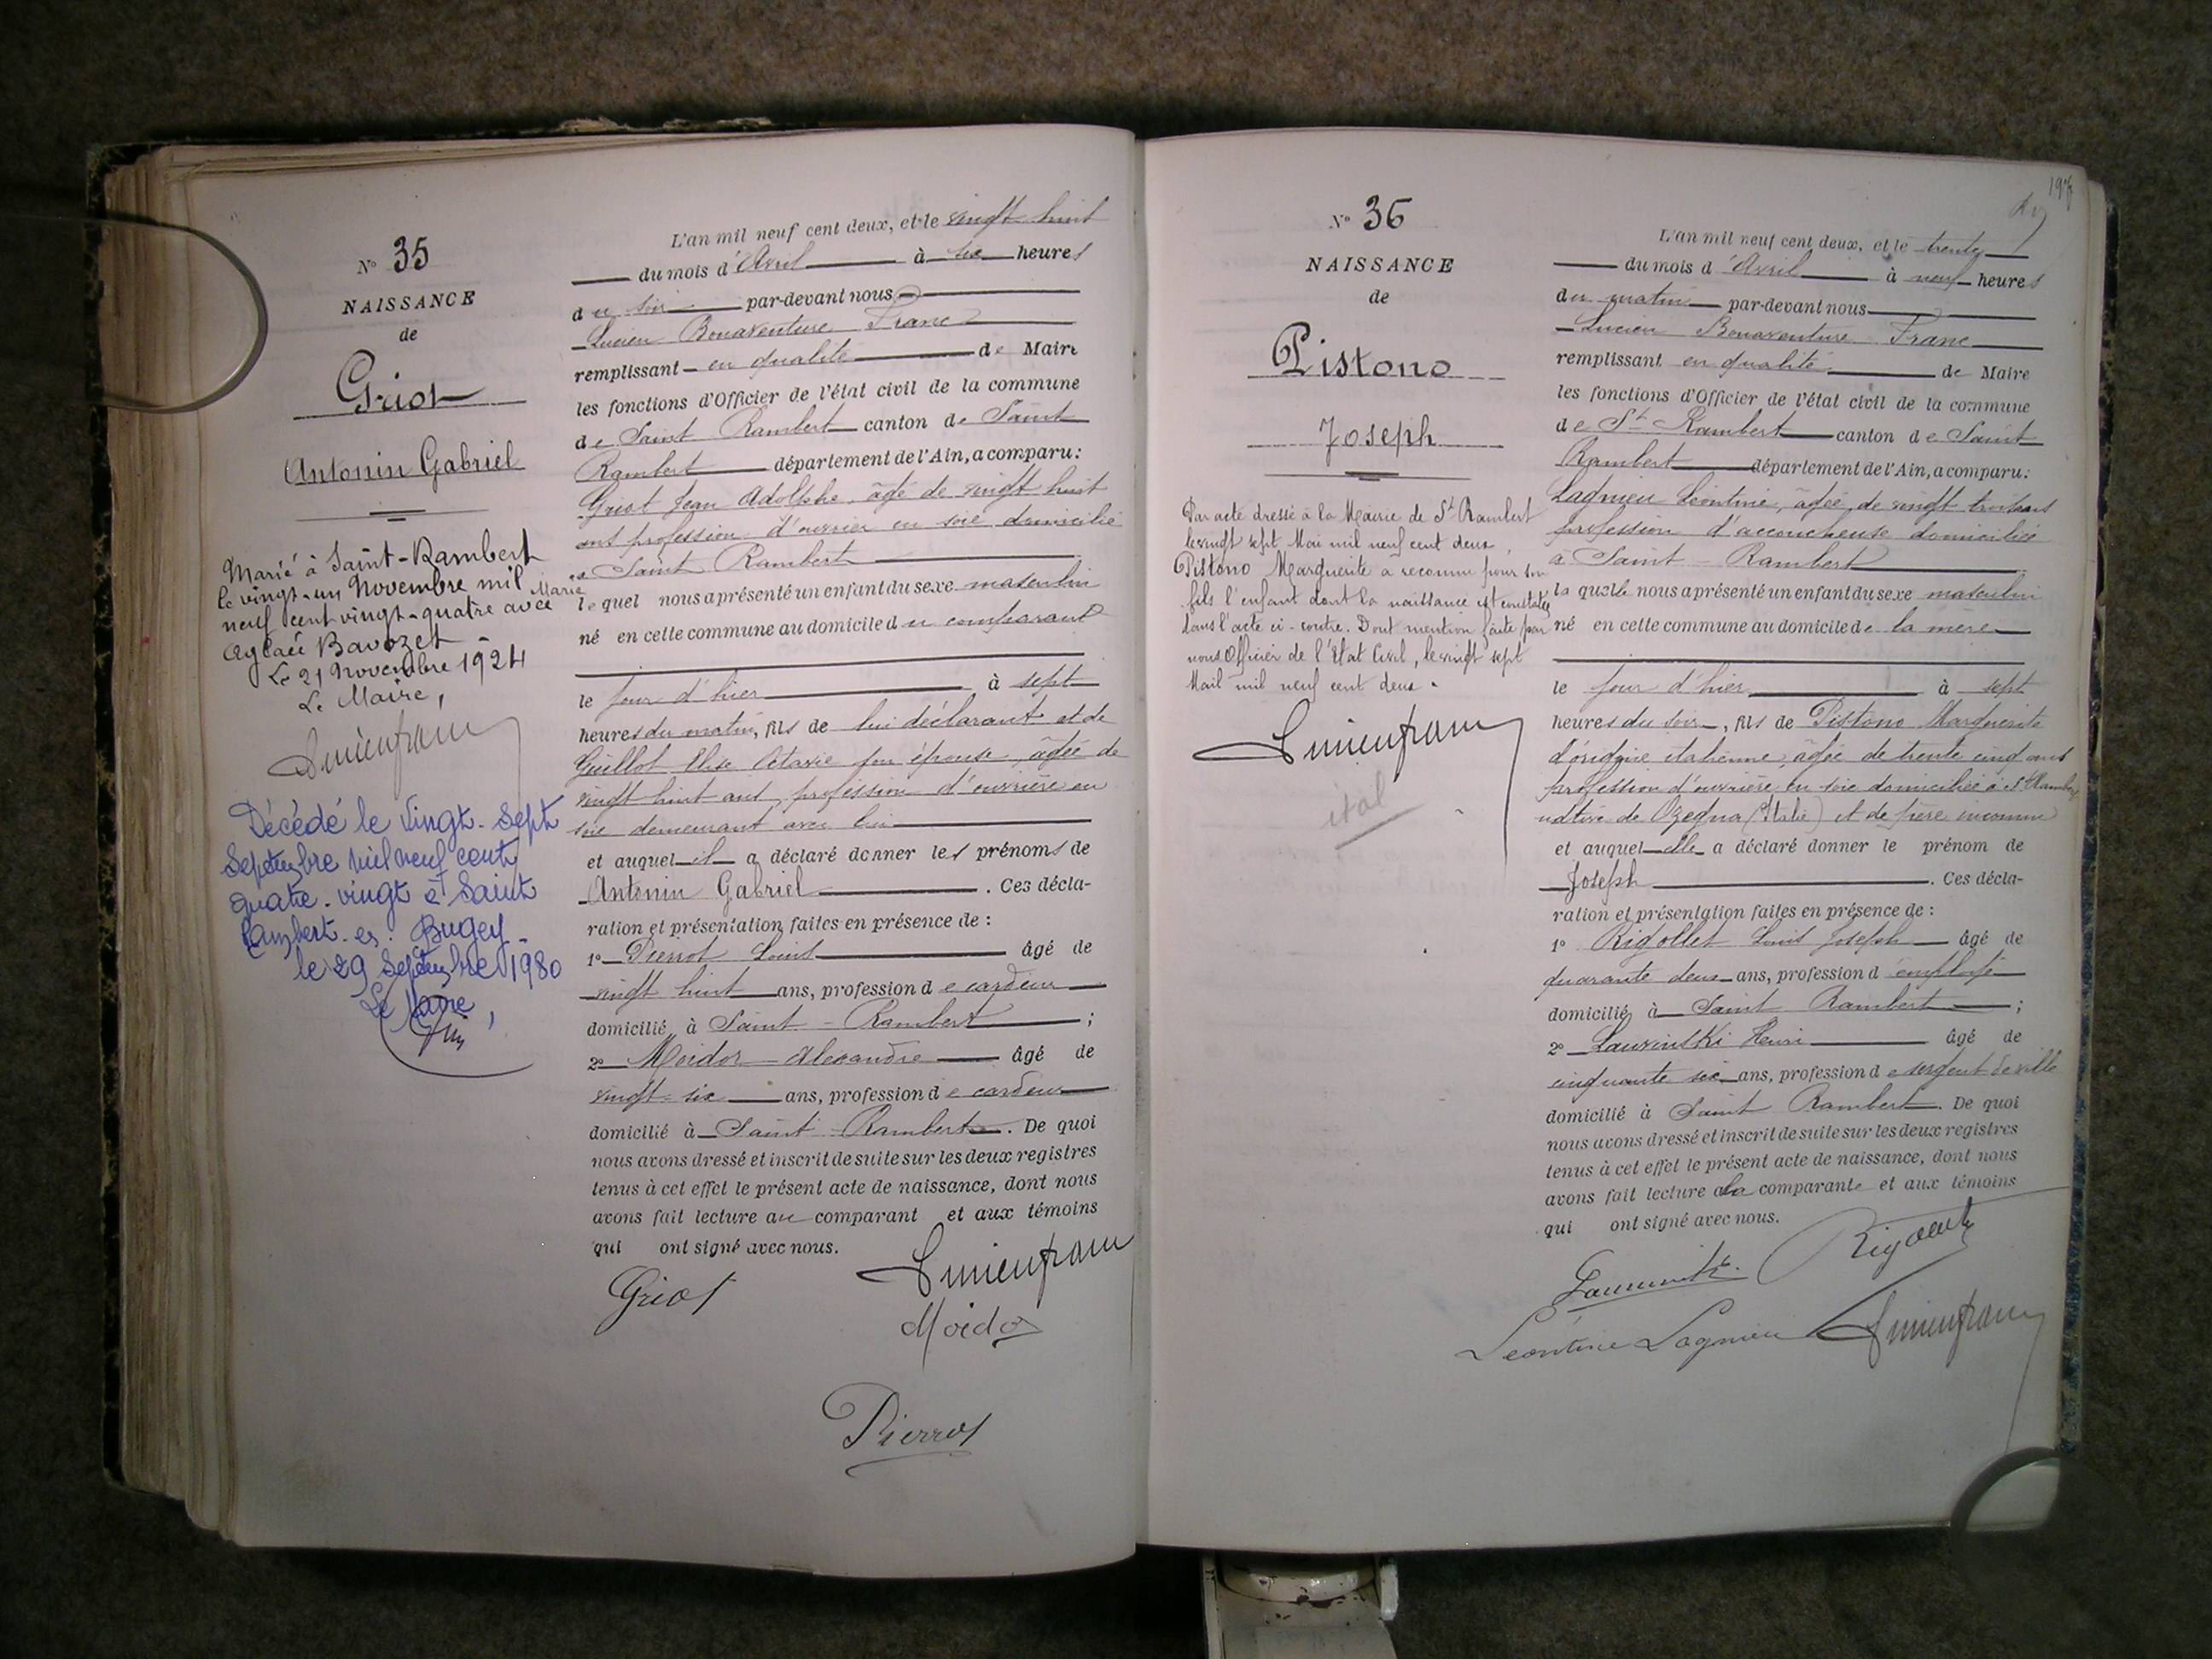 N° 35
NAISSANCE
de
Griot
Antonin Gabriel
Marié à Saint-Rambert
le vingt-un Novembre mil
neuf cent vingt-quatre avec Marie
Aglaée Bavozet
Le 21 Novembre 1924
Le Maire,
Lucien franc
Décédé le Vingt-Sept
Septembre mil neuf cent
quatre-vingt à Saint
Rambert-en-Bugey
le 29 Septembre 1980
Le Maire,
L'an mil neuf cent deux, et le vingt huit
du mois d'Avril à six heures
du soir par-devant nous
Lucien Bonaventure Franc
remplissant en qualité de Maire
les fonctions d'Officier de l'état civil de la commune
de Saint Rambert canton de Saint
Rambert département de l'Ain, a comparu:
Griot Jean Adolphe, âgé de vingt huit
ans profession d'ouvrier en soie domicilié
à Saint Rambert
lequel nous a présenté un enfant du sexe masculin
né en cette commune au domicile du comparant
le jour d'hier à sept
heures du matin, fils de lui déclarant et de
Guillot Elise Octavie son épouse, âgée de
vingt huit ans, profession d'ouvrière en
soie demeurant avec lui
et auquel il a déclaré donner les prénoms de
Antonin Gabriel. Ces décla-
ration et présentation faites en présence de :
1° Pierrot Louis âgé de
vingt huit ans, profession de cardeur
domicilié à Saint-Rambert ;
2° Moidor Alexandre âgé de
vingt-six ans, profession de cardeur
domicilié à Saint-Rambert. De quoi
nous avons dressé et inscrit de suite sur les deux registres
tenus à cet effet le présent acte de naissance, dont nous
avons fait lecture au comparant et aux témoins
qui ont signé avec nous.
Griot
Lucien franc
Moidor
Pierrot
197
N° 36
NAISSANCE
de
Pistono
Joseph
Par acte dressé à la Mairie de St Rambert
le vingt sept Mai mil neuf cent deux,
Pistono Marguerite a reconnu pour son
fils l'enfant dont la naissance est constatée
dans l'acte ci-contre. Dont mention faite par
nous Officier de l'Etat Civil, le vingt sept
Mail mil neuf cent deux.
Lucien franc
ital
L'an mil neuf cent deux, et le trente
du mois d'Avril à neuf heures
du matin par-devant nous
Lucien Bonaventure Franc
remplissant en qualité de Maire
les fonctions d'Officier de l'état civil de la commune
de St Rambert canton de Saint
Rambert département de l'Ain, a comparu:
Lagnieu Léontine, âgée de vingt trois ans
profession d'accoucheuse domiciliée
à Saint-Rambert
laquelle nous a présenté un enfant du sexe masculin
né en cette commune au domicile de la mère
le jour d'hier à sept
heures du soir, fils de Pistono Marguerite
d'origine italienne, âgée de trente cinq ans
profession d'ouvrière en soie domiciliée à St Rambert
native de Ozegna (Italie) et de père inconnu
et auquel elle a déclaré donner le prénom de
Joseph. Ces décla-
ration et présentation faites en présence de :
1° Rigollet Louis Joseph âgé de
quarante deux ans, profession d'employé
domicilié à Saint Rambert ;
2° Lawinski Henri âgé de
cinquante six ans, profession de sergent de ville
domicilié à Saint Rambert. De quoi
nous avons dressé et inscrit de suite sur les deux registres
tenus à cet effet le présent acte de naissance, dont nous
avons fait lecture à la comparante et aux témoins
qui ont signé avec nous.
Léontine Lagnieu
Lucien franc